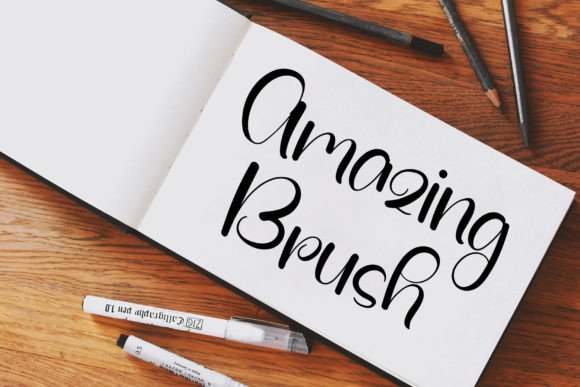 Amazing
Brush
ZIG Calligraphy pen 1.0